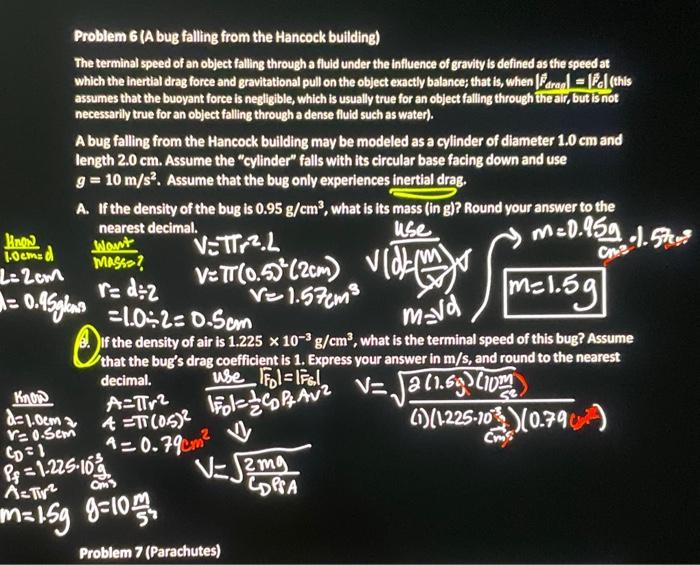 Problem 6 (A bug falling from the Hancock building)
The terminal speed of an object falling through a fluid under the influence of gravity is defined as the speed at
which the inertial drag force and gravitational pull on the object exactly balance; that is, when |F⃗drag| = |F⃗G| (this
assumes that the buoyant force is negligible, which is usually true for an object falling through the air, but is not
necessarily true for an object falling through a dense fluid such as water).
A bug falling from the Hancock building may be modeled as a cylinder of diameter 1.0 cm and
length 2.0 cm. Assume the "cylinder" falls with its circular base facing down and use
g = 10 m/s². Assume that the bug only experiences inertial drag.
A. If the density of the bug is 0.95 g/cm³, what is its mass (in g)? Round your answer to the
nearest decimal.
Know
1.0cm=d
L=2cm
d=0.95g/cm³
Want
Mass=?
r=d÷2
=1.0÷2=0.5cm
V=πr²·L
V=π(0.5)²(2cm)
V=1.57cm³
Use
V(d)=(m/V)V
m=Vd
m=0.95g/cm³·1.57cm³
m=1.5g
B. If the density of air is 1.225 × 10⁻³ g/cm³, what is the terminal speed of this bug? Assume
that the bug's drag coefficient is 1. Express your answer in m/s, and round to the nearest
decimal.
Know
d=1.0cm
r=0.5cm
CD=1
Pf=1.225·10⁻³g/cm³
A=πr²
m=1.5g g=10m/s²
A=πr²
A=π(0.5)²
A=0.79cm²
Use |FD|=|FG|
|FD|=½CDPfAv²
V=√(2mg/CDPfA)
V=√(2(1.5g)(10m/s²)/(1)(1.225·10⁻³g/cm³)(0.79cm²))
Problem 7 (Parachutes)